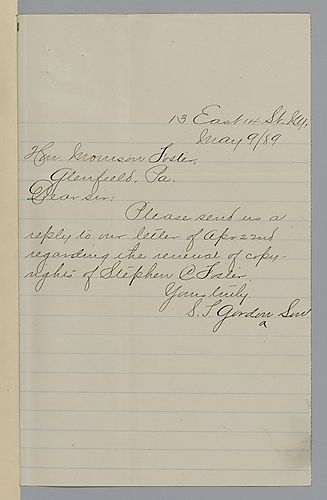 13 East 14 St. N.Y.
May 9/89
Hon. Morrison Foster,
Glenfield. Pa.
Dear sir:
Please send us a
reply to our letter of Apr 22nd
regarding the renewal of copy-
rights of Stephen C. Foster
Yours truly,
S. T. Gordon & Son